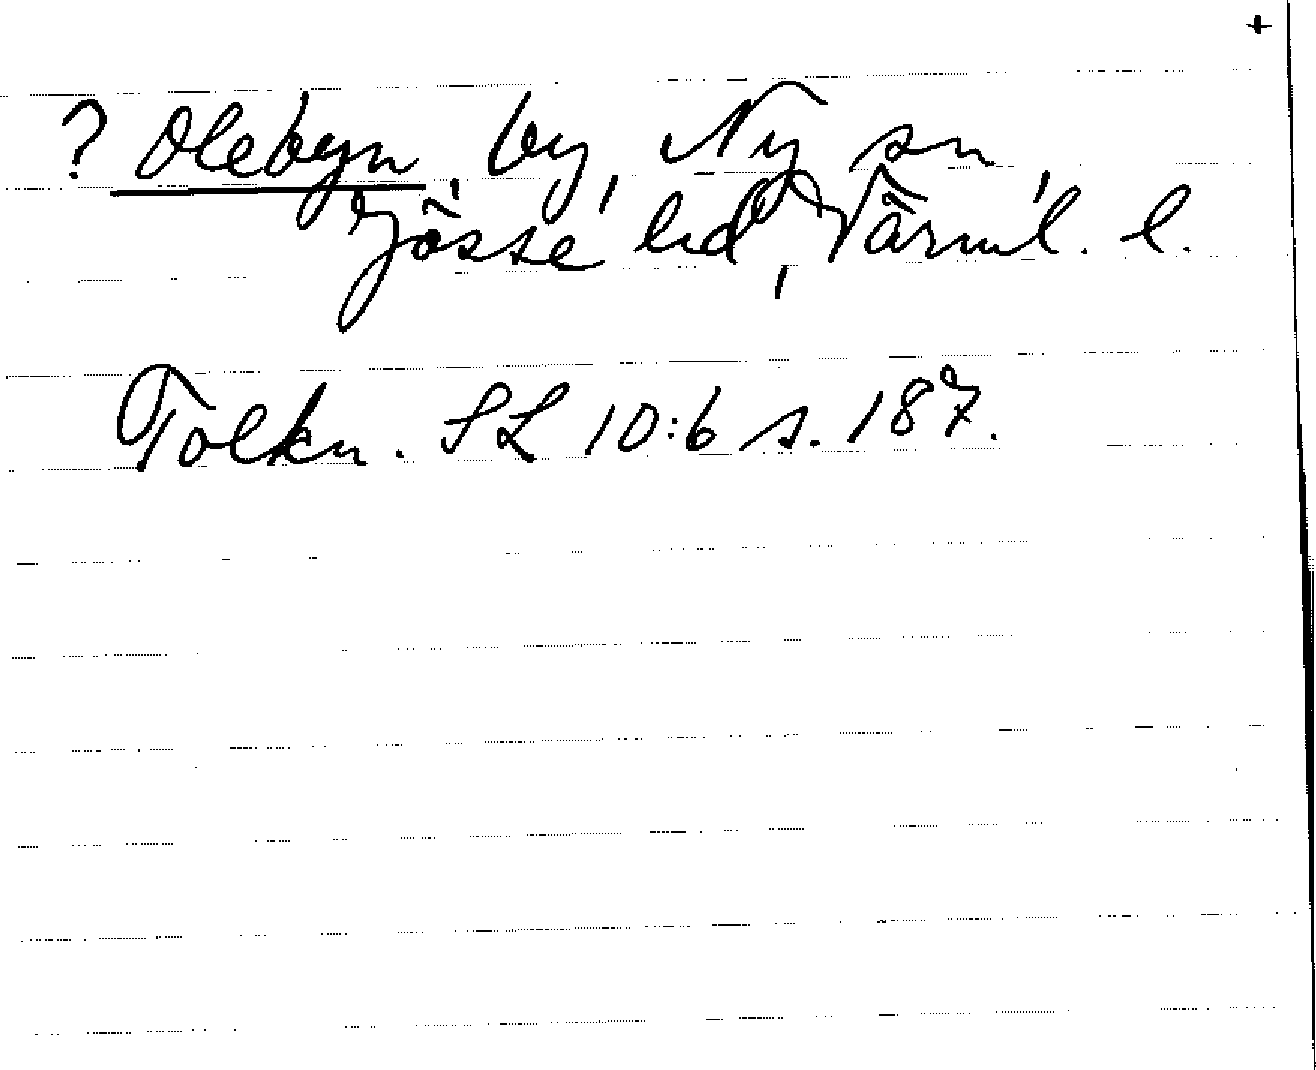 +
? Olebyn, by, Ny sn,
Jösse hd, Värml. l.
Tolkn. SL 10:6 s. 187.